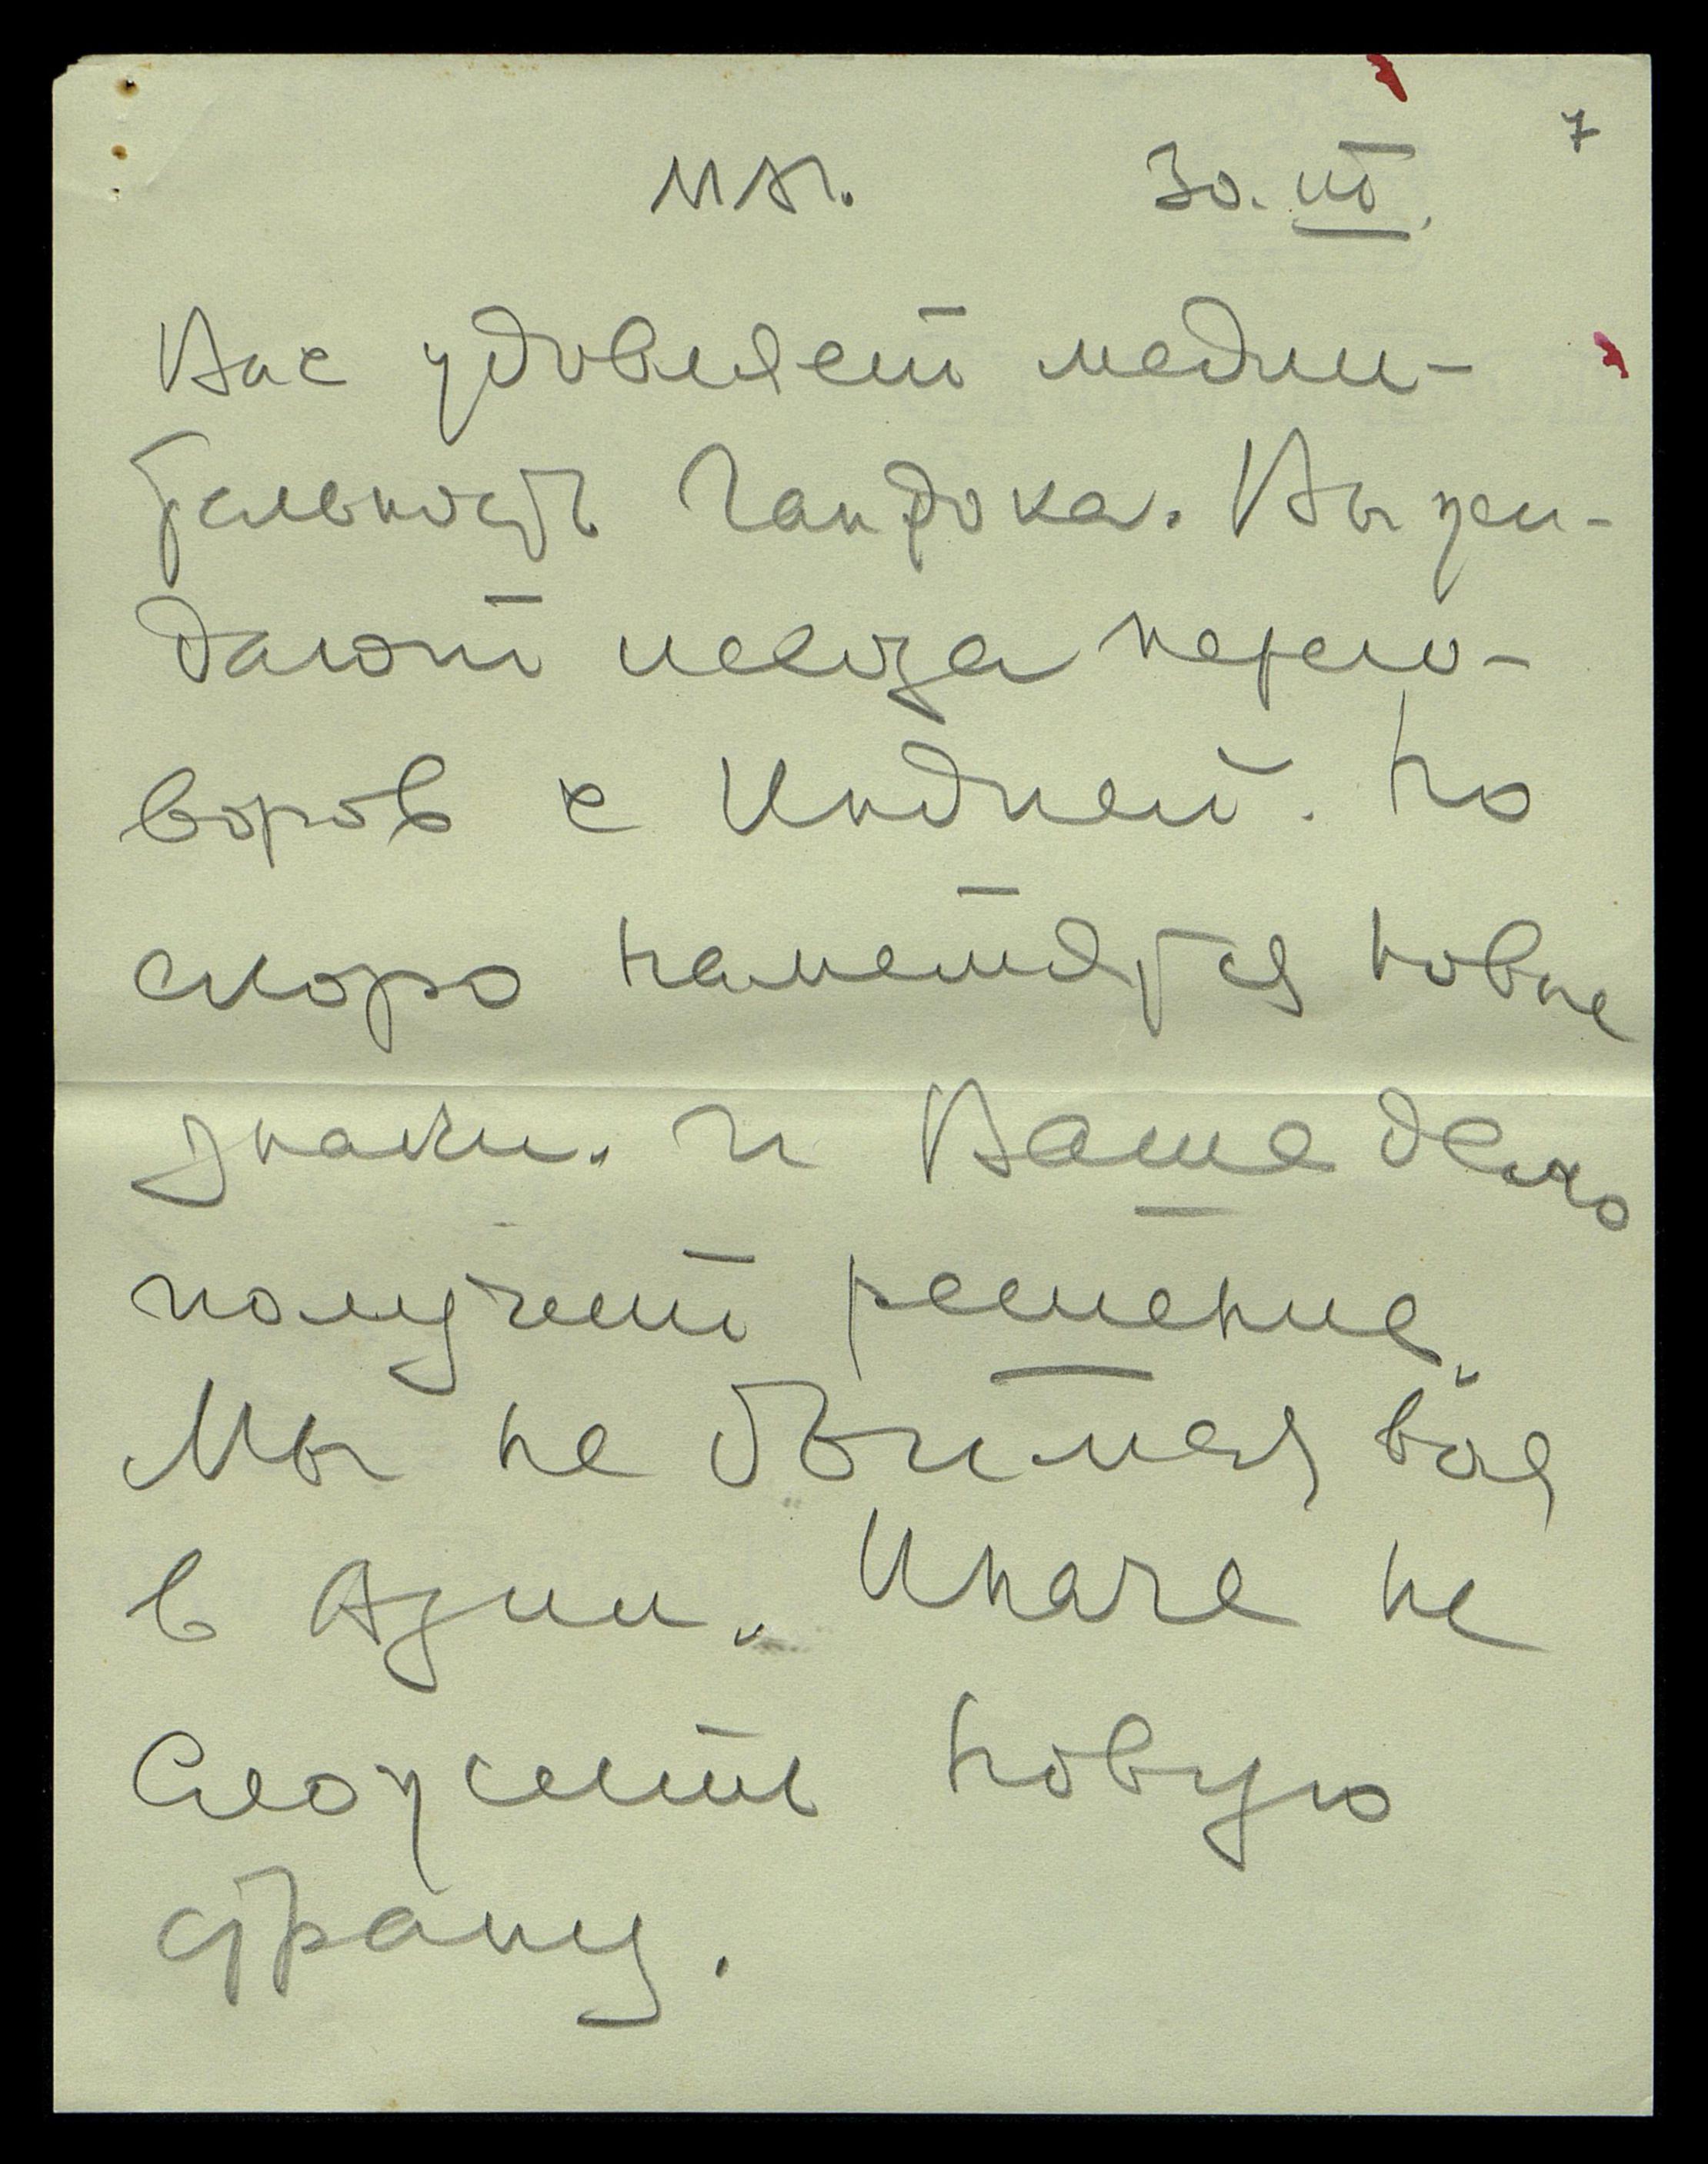 7
30. VII.
Вас удовляет медли-
тельность Гангтока. Выжи-
дают исхода перего-
воров с Индией. Но
скоро наметятся новые
знаки. И Ваше дело
получит решение.
Мы не боимся боя
в Азии. Иначе не
сложить новую
страну.